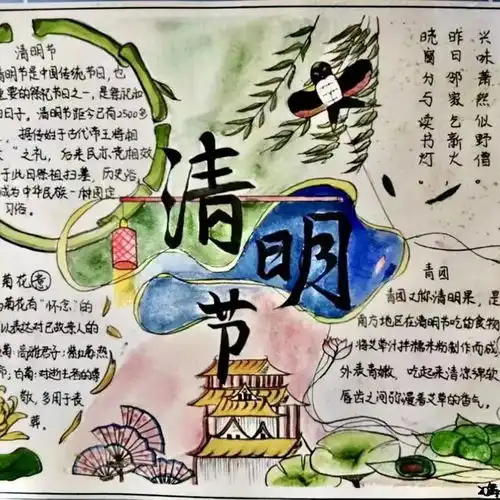 清明节
清明节是中国传统节日,也
重要的祭祀节日之一,是祭祀和
日子,清明节距今已有2500多
据传始于古代帝王将相
之礼,后来民亦竞相效
于此日祭祖扫墓,历史沿
成为中华民族一种固定
习俗。
清明节
兴味萧然似野僧。
昨日邻家乞新火
晓窗分与读书灯。
菊花
菊花有“怀念”的
以表达对已故亲人的
敬,多用于丧
葬。
青团
青团又称清明果,是
南方地区在清明节吃的食物
将艾草汁拌糯米粉制作而成
外表青嫩 吃起来清凉绵软
唇齿之间弥漫着艾草的香气。